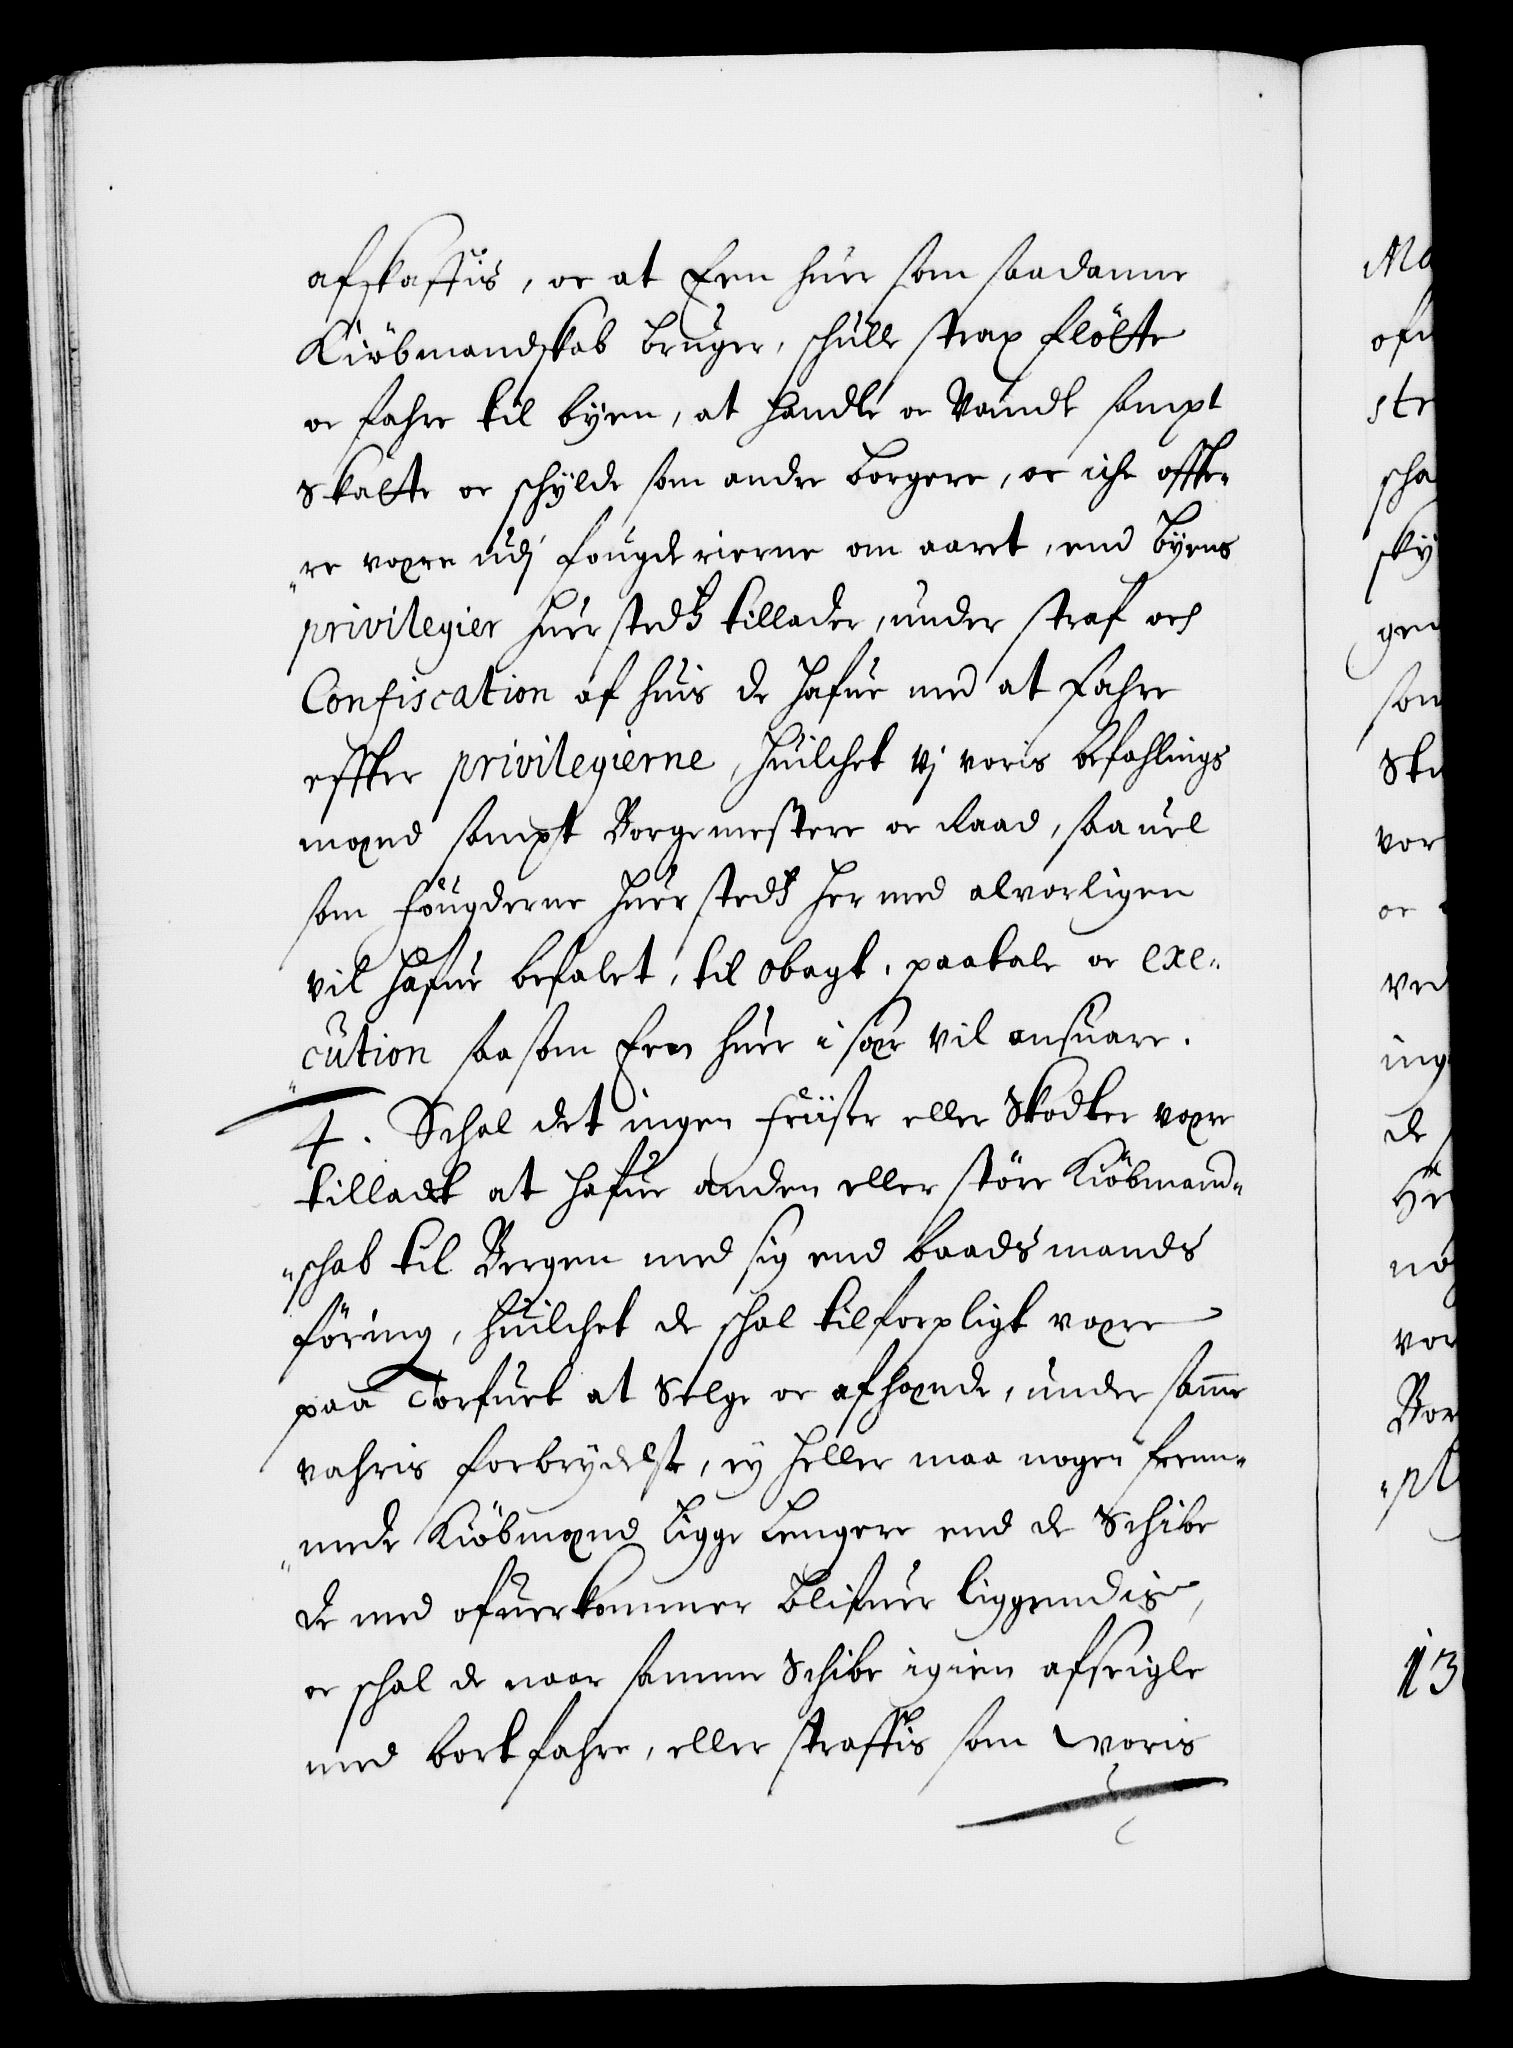 afskaffis, oc at Een huer som saadanne
Kiöbmandskab bruger, schulle strax flötte
oc fahre til byen, at handle oc Vandle sampt
Skatte oc schylde som andre borgere, oc iche offte-
"re være udj fougderierne om aaret, end byens
privilegier huerstedtz tillader, under straf och
Confiscation af huis de hafue med at fahre
effter privilegierne, huilchet vj voris befahlings
mænd sampt Borgemestere oc Raad, saauel
som fougderne huerstedtz her med alvorligen
vil hafue befalet, til obagt, paatale oc exe-
"cution saasom Een huer i sær vil ansuare.
4. Schal det ingen friiser eller Skodter være
tilladt at hafue anden eller större Kiöbmand-
"schab til Bergen med sig end baadsmands
föring, huilchet de schal tilforpligt være
paa Torfuet at Selge oc afhænde, under samme
vahris forbrydelse, ey heller maa nogen frem-
"mede Kiöbmænd ligge lengere end de Schibe
de med ofuerkommer blifuer liggendis,
oc schal de naar samme Schibe igien afseigle
med bortfahre, eller straffis som woris
Ma
ofu
str
scha
sky
gen
som
Sku
vor
oc
ved
ing
de
Hr
nog
vor
Bor
"pl
13